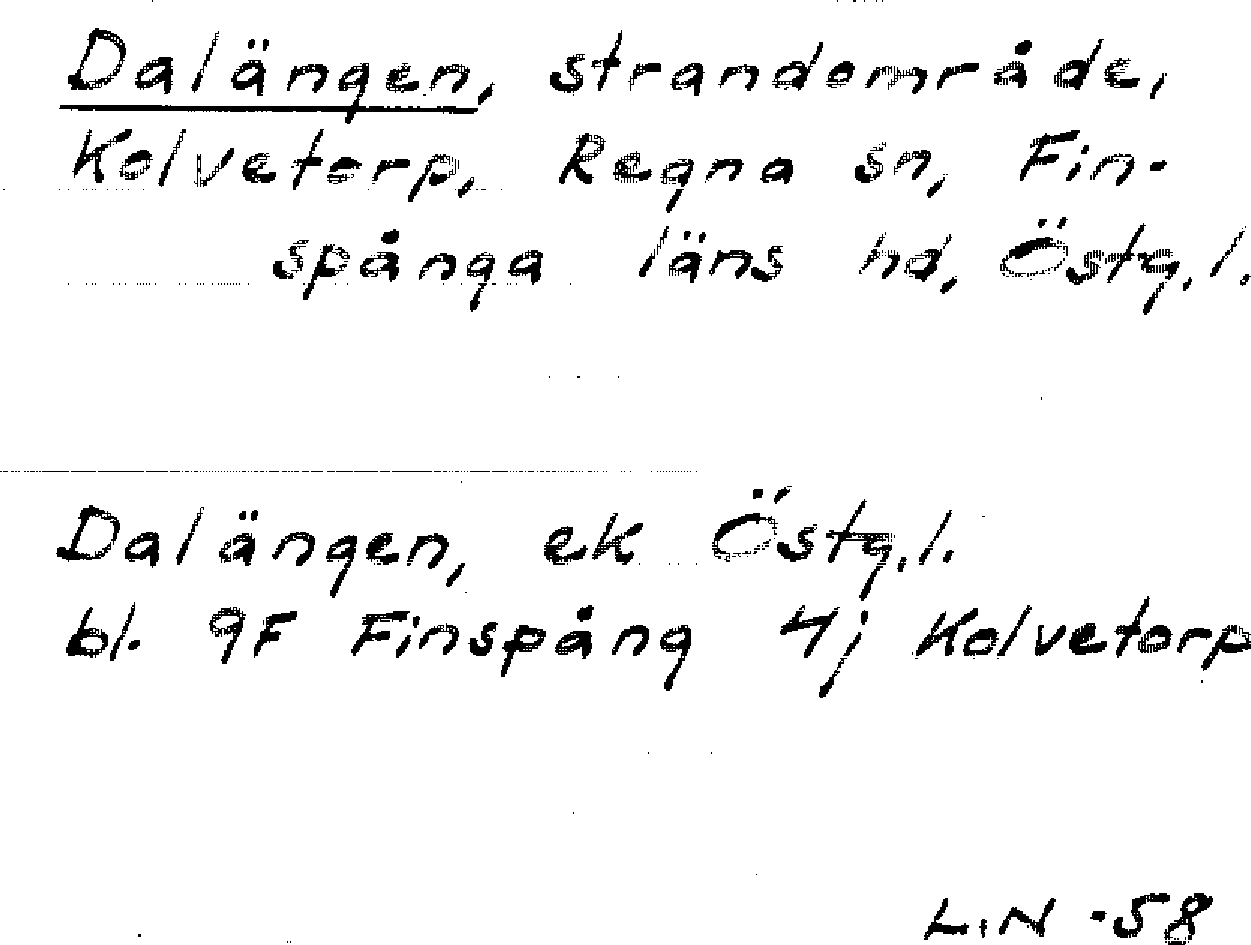 Dalängen, strandområde,
Kolvetorp, Regna sn, Fin-
spånga läns hd, Östg.l.
Dalängen, ek Östg.l.
bl. 9F Finspång 4j Kolvetorp
L.N -58